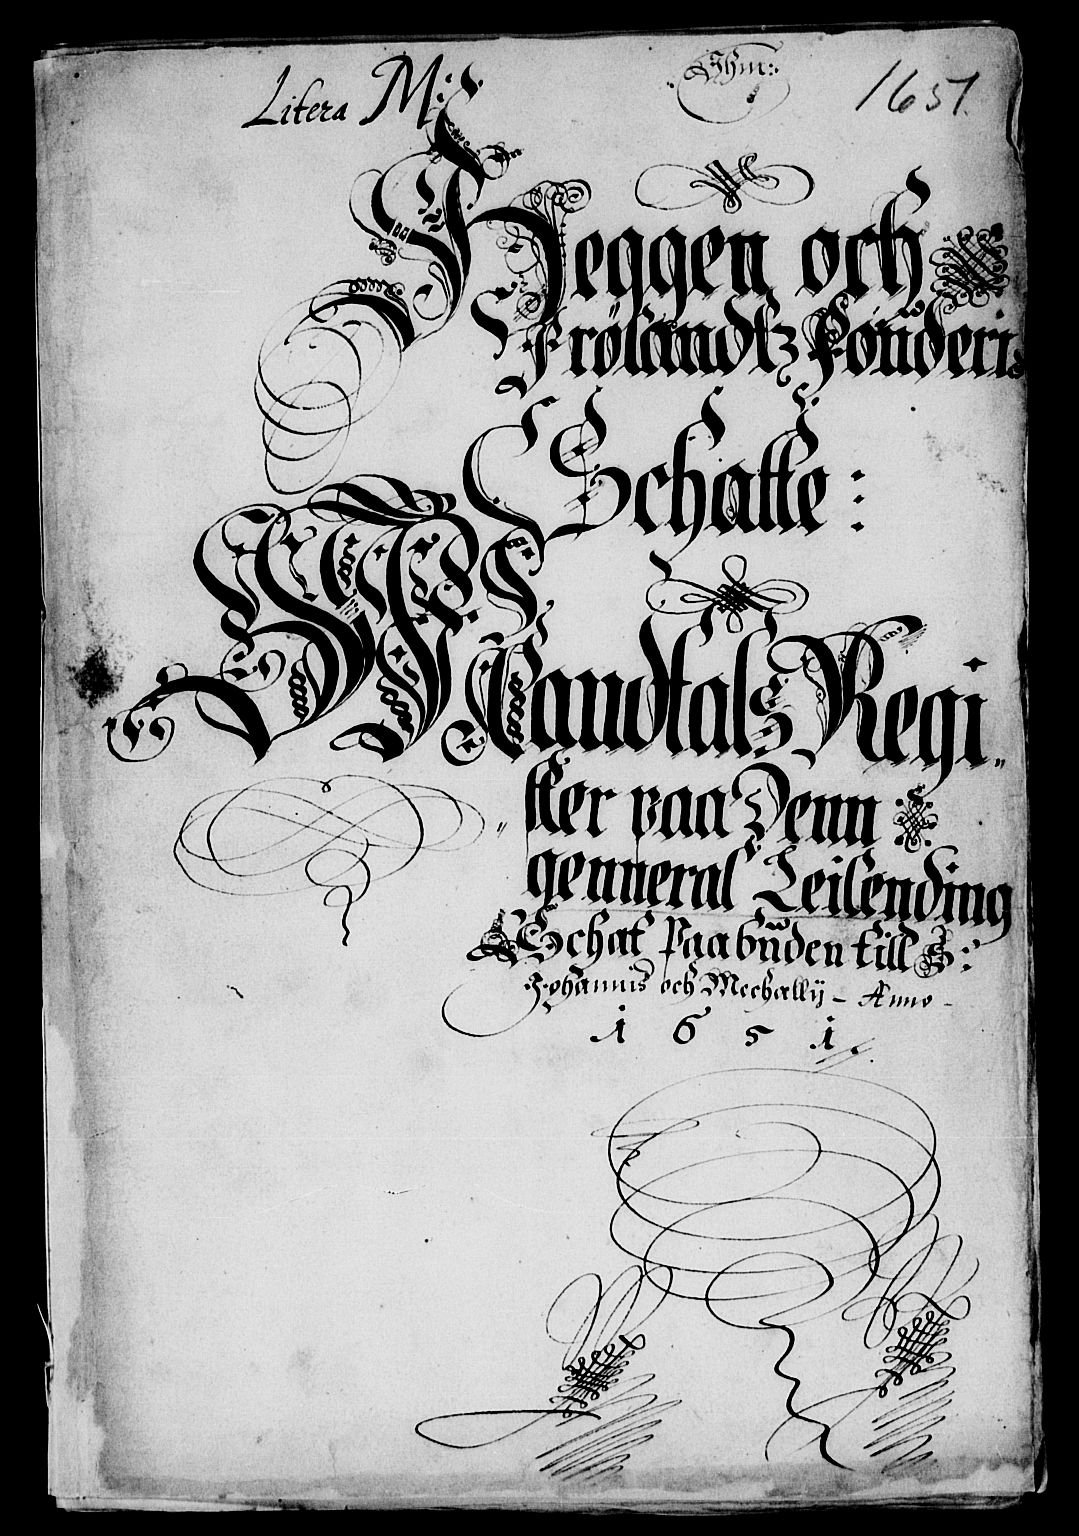 Litera M:
1651.
Heggen och
Frölandtz Foüderi
Schatte:
Mandtals Regi„
ster paa Denn
genneral Leilending
Schat Paabüden till S:
Johannis och Mechallij - Anno -
1651.